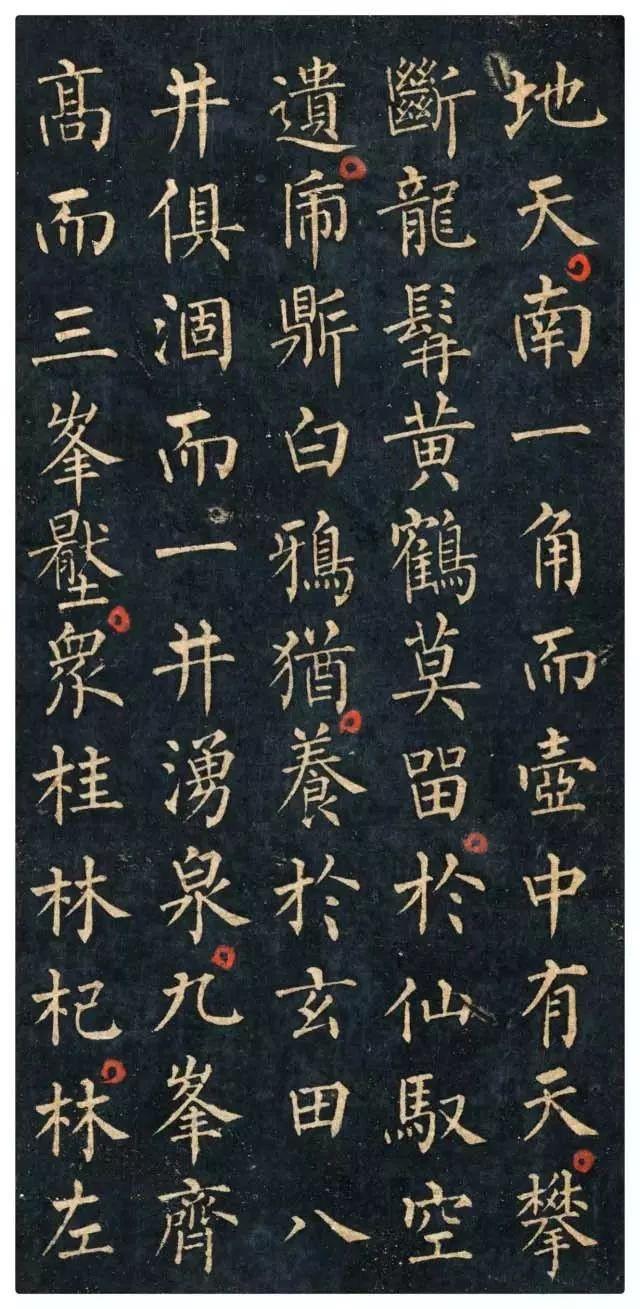 地天南一角而壺中有天攀
斷龍髯黃鶴莫留於仙馭空
遺帝鼎白鴉猶養於玄田八
井俱涸而一井湧泉九峯齊
髙而三峯壓衆桂林杞林左